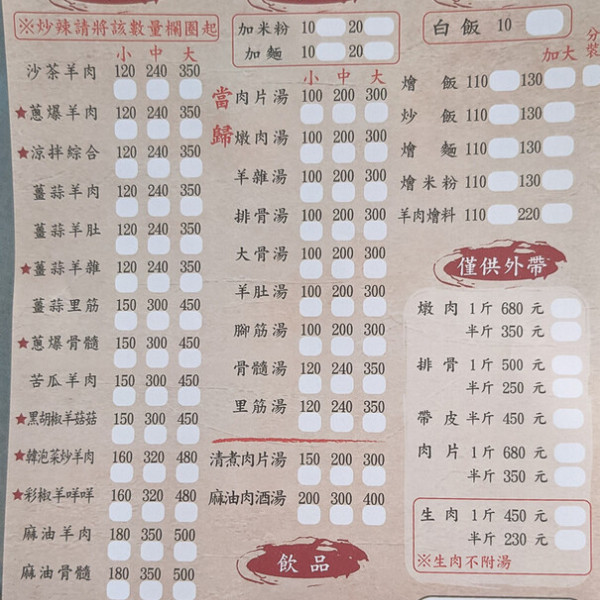 ※炒辣請將該數量欄圈起
小 中 大
沙茶羊肉 120 240 350
★蔥爆羊肉 120 240 350
★涼拌綜合 120 240 350
薑蒜羊肉 120 240 350
薑蒜羊肚 120 240 350
★薑蒜羊雜 120 240 350
薑蒜里筋 150 300 450
★蔥爆骨髓 150 300 450
苦瓜羊肉 150 300 450
★黑胡椒羊菇菇 150 300 450
★韓泡菜炒羊肉 160 320 480
★彩椒羊咩咩 160 320 480
麻油羊肉 180 350 500
麻油骨髓 180 350 500
加米粉 10 20
加麵 10 20
小 中 大
當歸
肉片湯 100 200 300
燉肉湯 100 200 300
羊雜湯 100 200 300
排骨湯 100 200 300
大骨湯 100 200 300
羊肚湯 100 200 300
腳筋湯 100 200 300
骨髓湯 120 240 350
里筋湯 120 240 350
清煮肉片湯 150 200 300
麻油肉酒湯 200 300 400
飲品
白飯 10
加大 分裝
燴飯 110 130
炒飯 110 130
燴麵 110 130
燴米粉 110 130
羊肉燴料 110 220
僅供外帶
燉肉 1斤 680 元
半斤 350 元
排骨 1斤 500 元
半斤 250 元
帶皮 半斤 450 元
肉片 1斤 680 元
半斤 350 元
生肉 1斤 450 元
半斤 230 元
※生肉不附湯